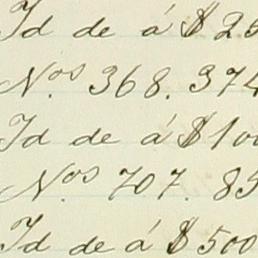 Id de á $ 25
N.os 368. 374
Id de á $ 100
N.os 707. 85
Id de á $ 500